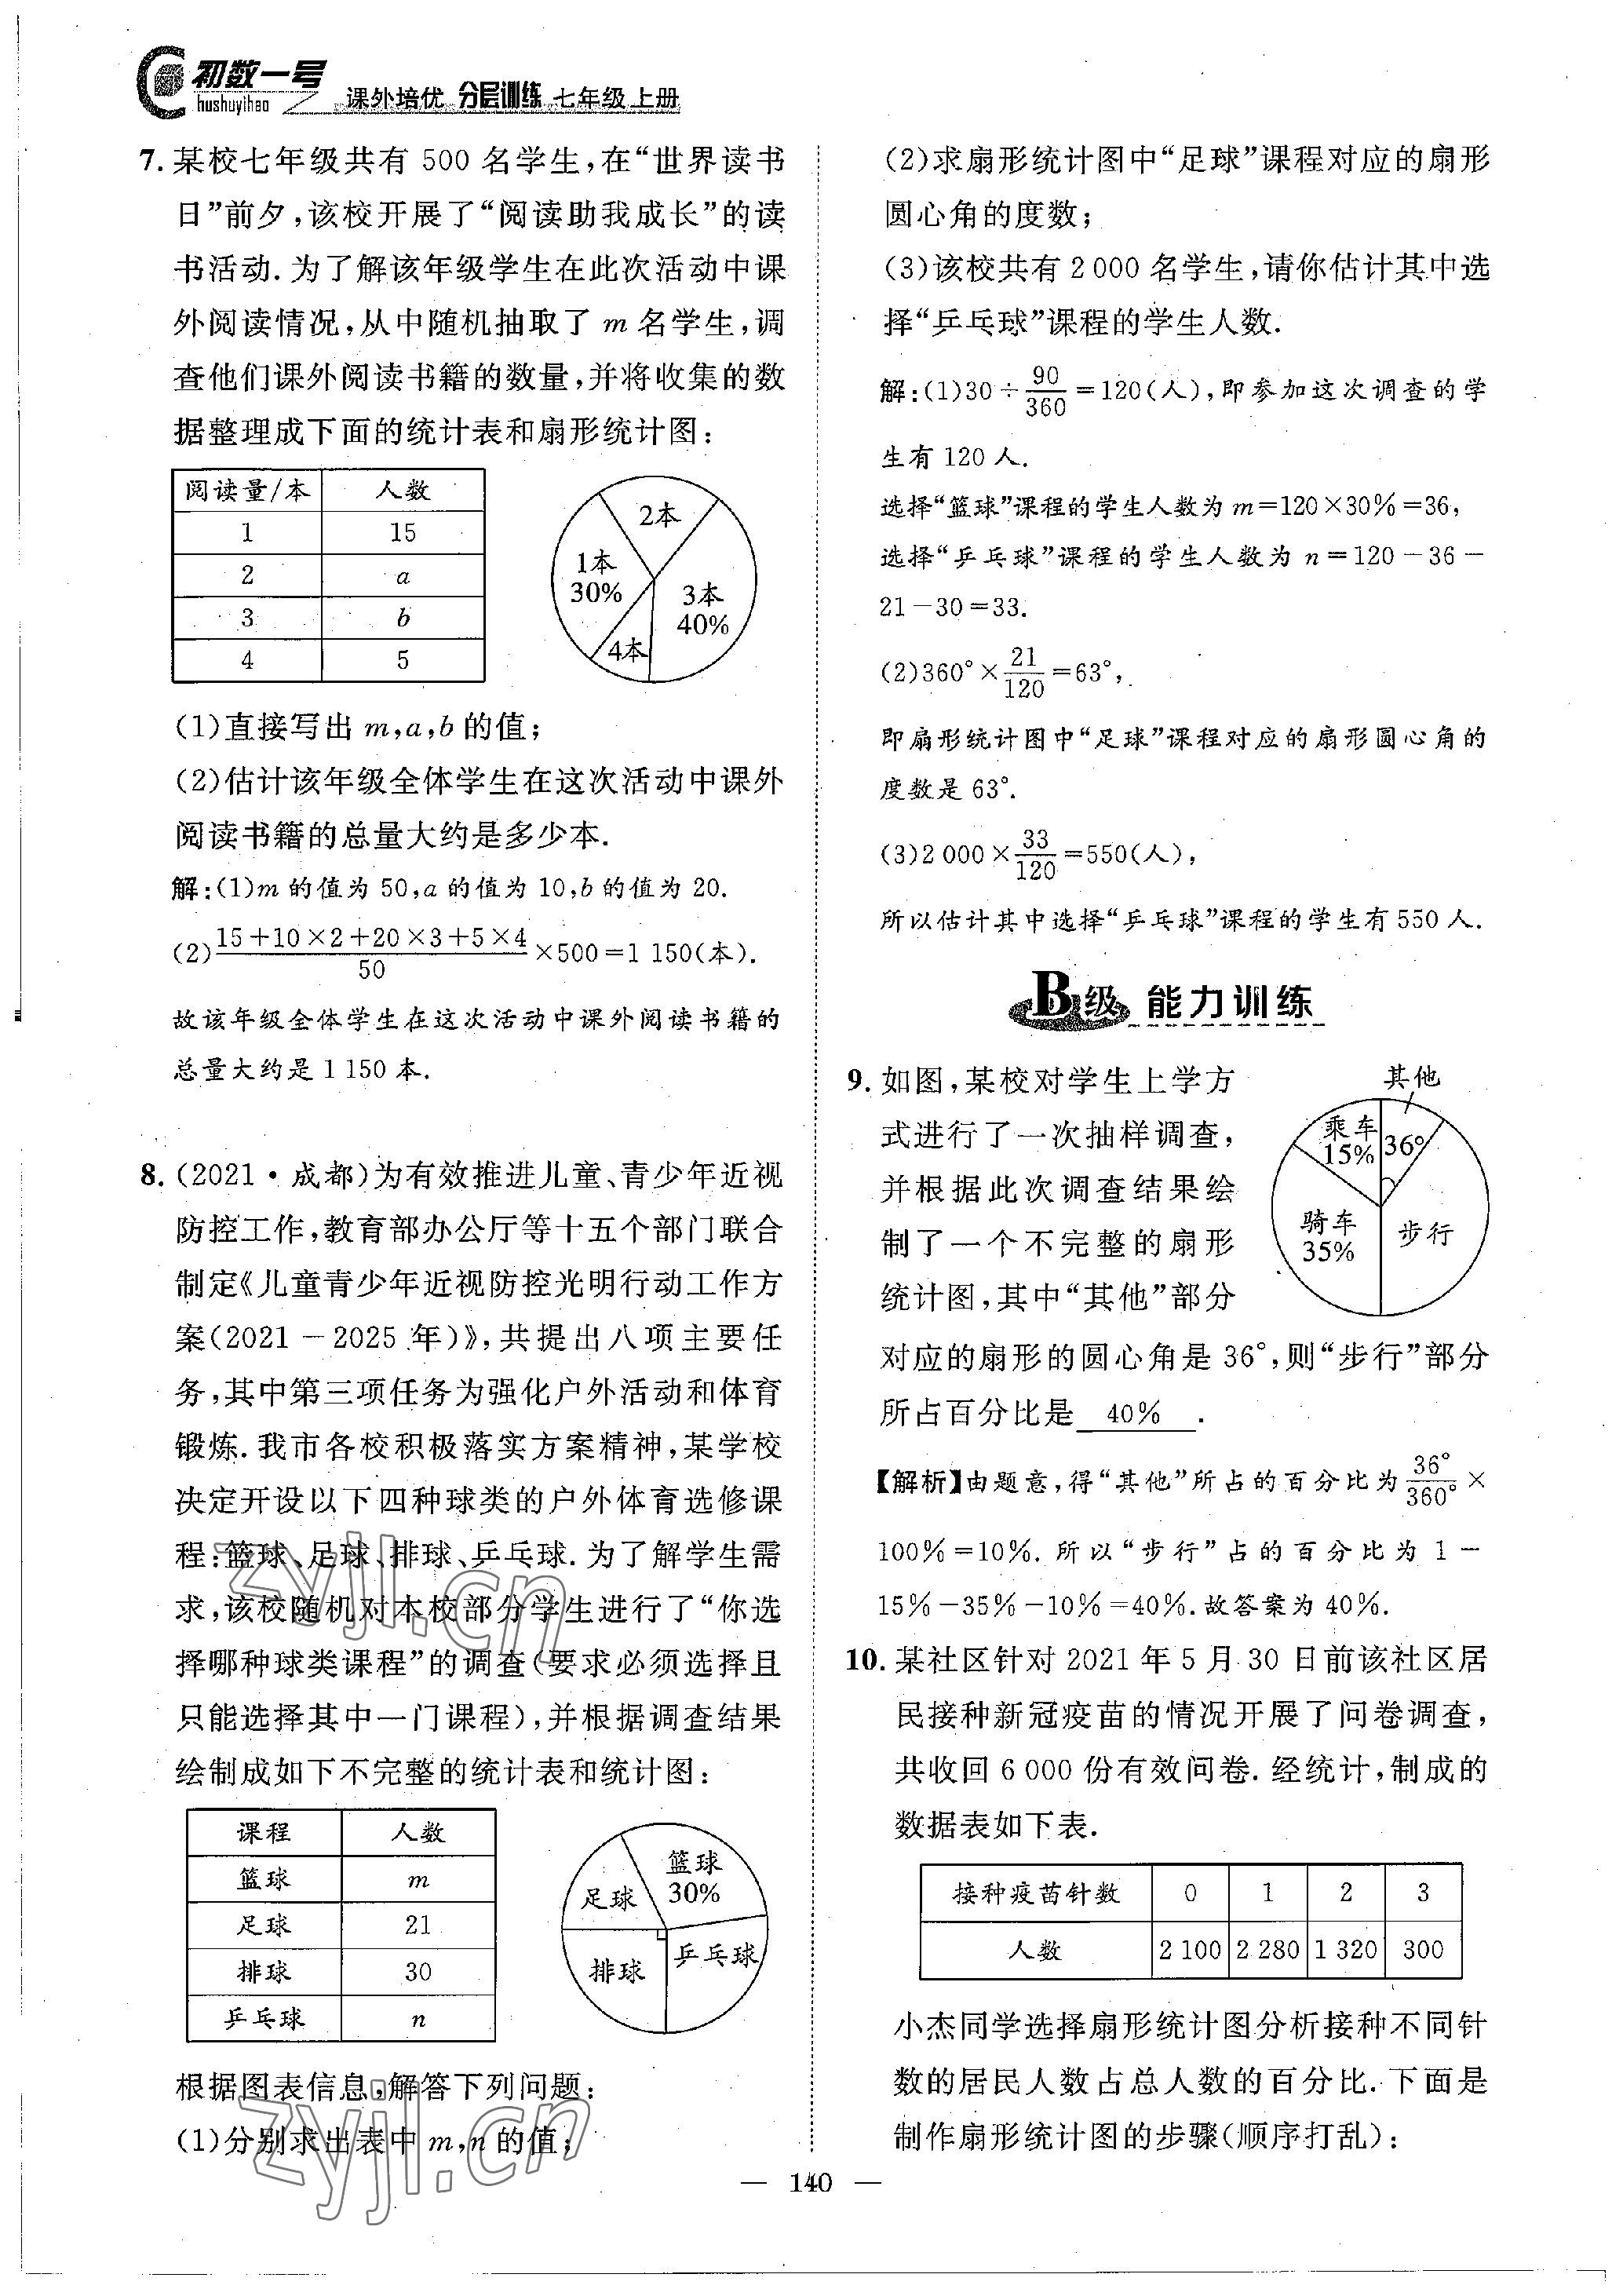 初数一号
hushuyihao
课外培优 分层训练 七年级上册
7. 某校七年级共有 500 名学生，在“世界读书
日”前夕，该校开展了“阅读助我成长”的读
书活动. 为了解该年级学生在此次活动中课
外阅读情况，从中随机抽取了 m 名学生，调
查他们课外阅读书籍的数量，并将收集的数
据整理成下面的统计表和扇形统计图：
阅读量/本 人数
1 15
2 a
3 b
4 5
2本
1本
30%
3本
40%
4本
(1)直接写出 m,a,b 的值；
(2)估计该年级全体学生在这次活动中课外
阅读书籍的总量大约是多少本.
解：(1)m 的值为 50,a 的值为 10,b 的值为 20.
(2)\frac{15+10×2+20×3+5×4}{50}×500=1 150(本).
故该年级全体学生在这次活动中课外阅读书籍的
总量大约是 1 150 本.
8. (2021·成都)为有效推进儿童、青少年近视
防控工作，教育部办公厅等十五个部门联合
制定《儿童青少年近视防控光明行动工作方
案(2021－2025 年)》，共提出八项主要任
务，其中第三项任务为强化户外活动和体育
锻炼. 我市各校积极落实方案精神，某学校
决定开设以下四种球类的户外体育选修课
程：篮球、足球、排球、乒乓球. 为了解学生需
求，该校随机对本校部分学生进行了“你选
择哪种球类课程”的调查(要求必须选择且
只能选择其中一门课程)，并根据调查结果
绘制成如下不完整的统计表和统计图：
课程 人数
篮球 m
足球 21
排球 30
乒乓球 n
篮球
30%
足球
排球
乒乓球
根据图表信息，解答下列问题：
(1)分别求出表中 m,n 的值；
(2)求扇形统计图中“足球”课程对应的扇形
圆心角的度数；
(3)该校共有 2 000 名学生，请你估计其中选
择“乒乓球”课程的学生人数.
解：(1)30÷\frac{90}{360}=120(人)，即参加这次调查的学
生有 120 人.
选择“篮球”课程的学生人数为 m=120×30%=36，
选择“乒乓球”课程的学生人数为 n=120－36－
21－30=33.
(2)360°×\frac{21}{120}=63°，
即扇形统计图中“足球”课程对应的扇形圆心角的
度数是 63°.
(3)2 000×\frac{33}{120}=550(人)，
所以估计其中选择“乒乓球”课程的学生有 550 人.
B级 能力训练
9. 如图，某校对学生上学方
式进行了一次抽样调查，
并根据此次调查结果绘
制了一个不完整的扇形
统计图，其中“其他”部分
对应的扇形的圆心角是 36°，则“步行”部分
所占百分比是 40% .
其他
乘车
15%
36°
骑车
35%
步行
【解析】由题意，得“其他”所占的百分比为\frac{36°}{360°}×
100%=10%. 所以“步行”占的百分比为 1－
15%－35%－10%=40%. 故答案为 40%.
10. 某社区针对 2021 年 5 月 30 日前该社区居
民接种新冠疫苗的情况开展了问卷调查，
共收回 6 000 份有效问卷. 经统计，制成的
数据表如下表.
接种疫苗针数 0 1 2 3
人数 2 100 2 280 1 320 300
小杰同学选择扇形统计图分析接种不同针
数的居民人数占总人数的百分比. 下面是
制作扇形统计图的步骤(顺序打乱)：
— 140 —
zyjl.cn
zyjl.cn